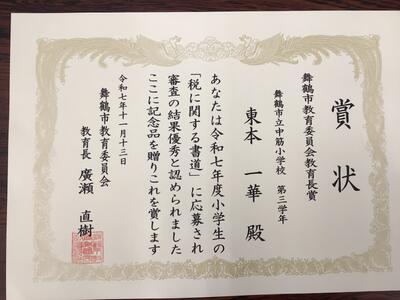 賞状
舞鶴市教育委員会教育長賞
舞鶴市立中筋小学校 第三学年
東本 一華 殿
あなたは令和七年度小学生の
「税に関する書道」に応募され
審査の結果優秀と認められました
ここに記念品を贈りこれを賞します
令和七年十一月十三日
舞鶴市教育委員会
教育長 廣瀬 直樹